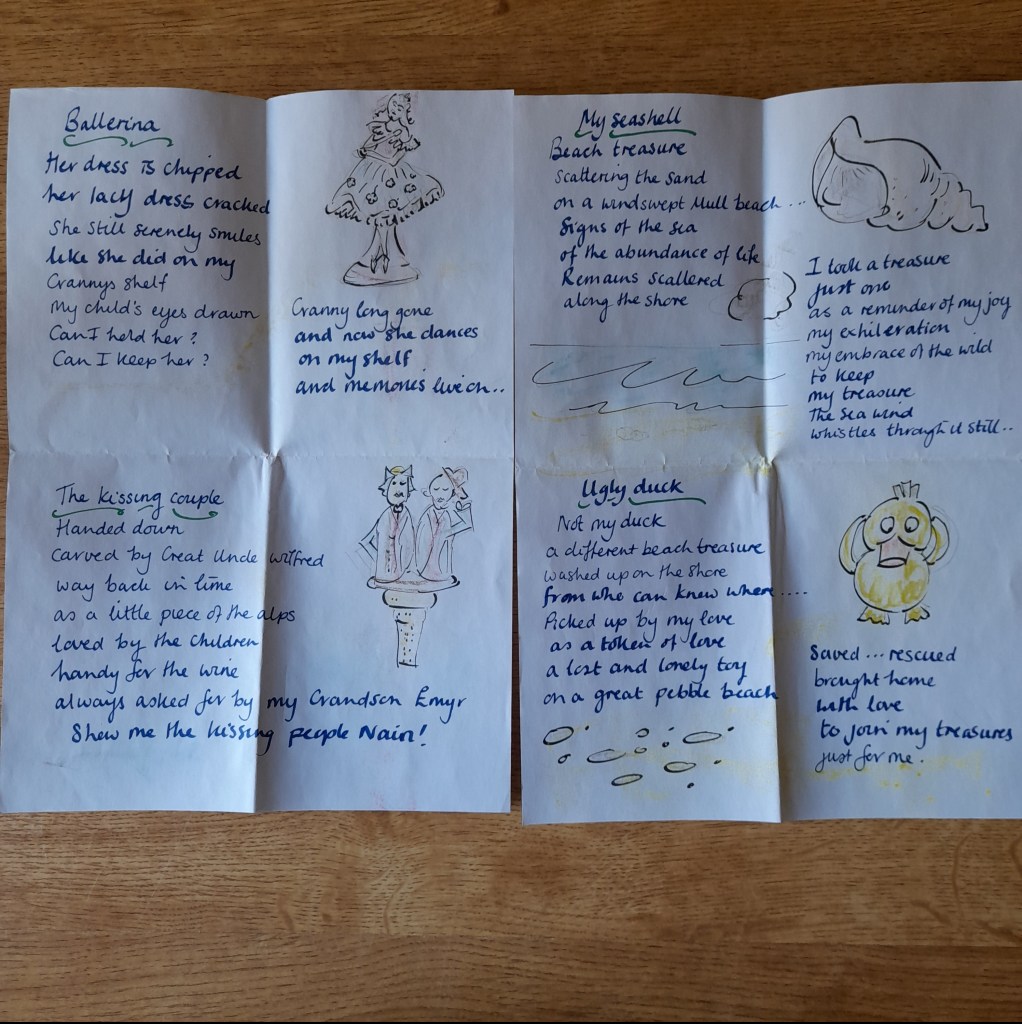 Ballerina
Her dress is chipped
her lacy dress cracked
She still serenely smiles
like she did on my
Grannys shelf
My child's eyes drawn
Can I hold her?
Can I keep her?
Granny long gone
and now she dances
on my shelf
and memories live on..
The kissing couple
Handed down
carved by Great Uncle Wilfred
way back in time
as a little piece of the alps
loved by the children
handy for the wine
always asked for by my Grandson Emyr
Show me the kissing people Nain!
My seashell
Beach treasure
scattering the sand
on a windswept Mull beach...
Signs of the sea
of the abundance of life
Remains scattered
along the shore
I took a treasure
just one
as a reminder of my joy
my exhileration
my embrace of the wild
to keep
my treasure
The sea wind
whistles through it still..
Ugly duck
Not my duck
a different beach treasure
washed up on the shore
from who can know where....
Picked up by my love
as a token of love
a lost and lonely toy
on a great pebble beach
Saved... rescued
brought home
with love
to join my treasures
just for me.